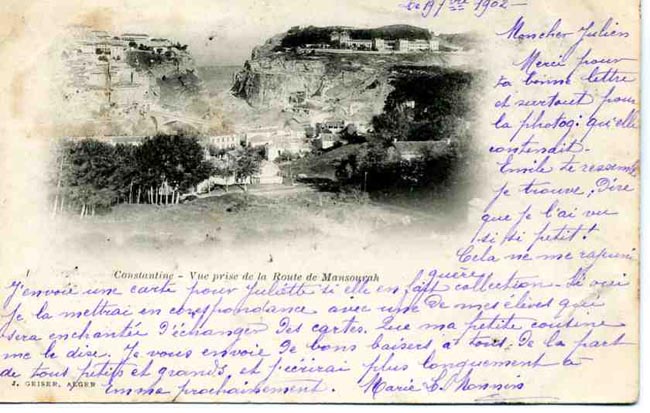 le 19 7bre 1902 -
Mon cher Julien
Merci pour
ta bonne lettre
et surtout pour
la photog: qu'elle
contenait.-
Emile te ressemble
je trouve; Dire
que je l'ai vu
si si petit!
Cela ne me rajeuni
guère
Constantine - Vue prise de la Route de Mansourah
J'envoie une carte pour Juliette si elle en fait collection - Si oui
je la mettrai en correspondance avec une de mes élèves qui
sera enchantée d'échanger des cartes. Que ma petite cousine
me le dise. Je vous envoie de bons baisers à tous. de la part
de tous petits et grands, et j'écrirai plus longuement à
J. GEISER, ALGER
Emma prochainement. Marie L.